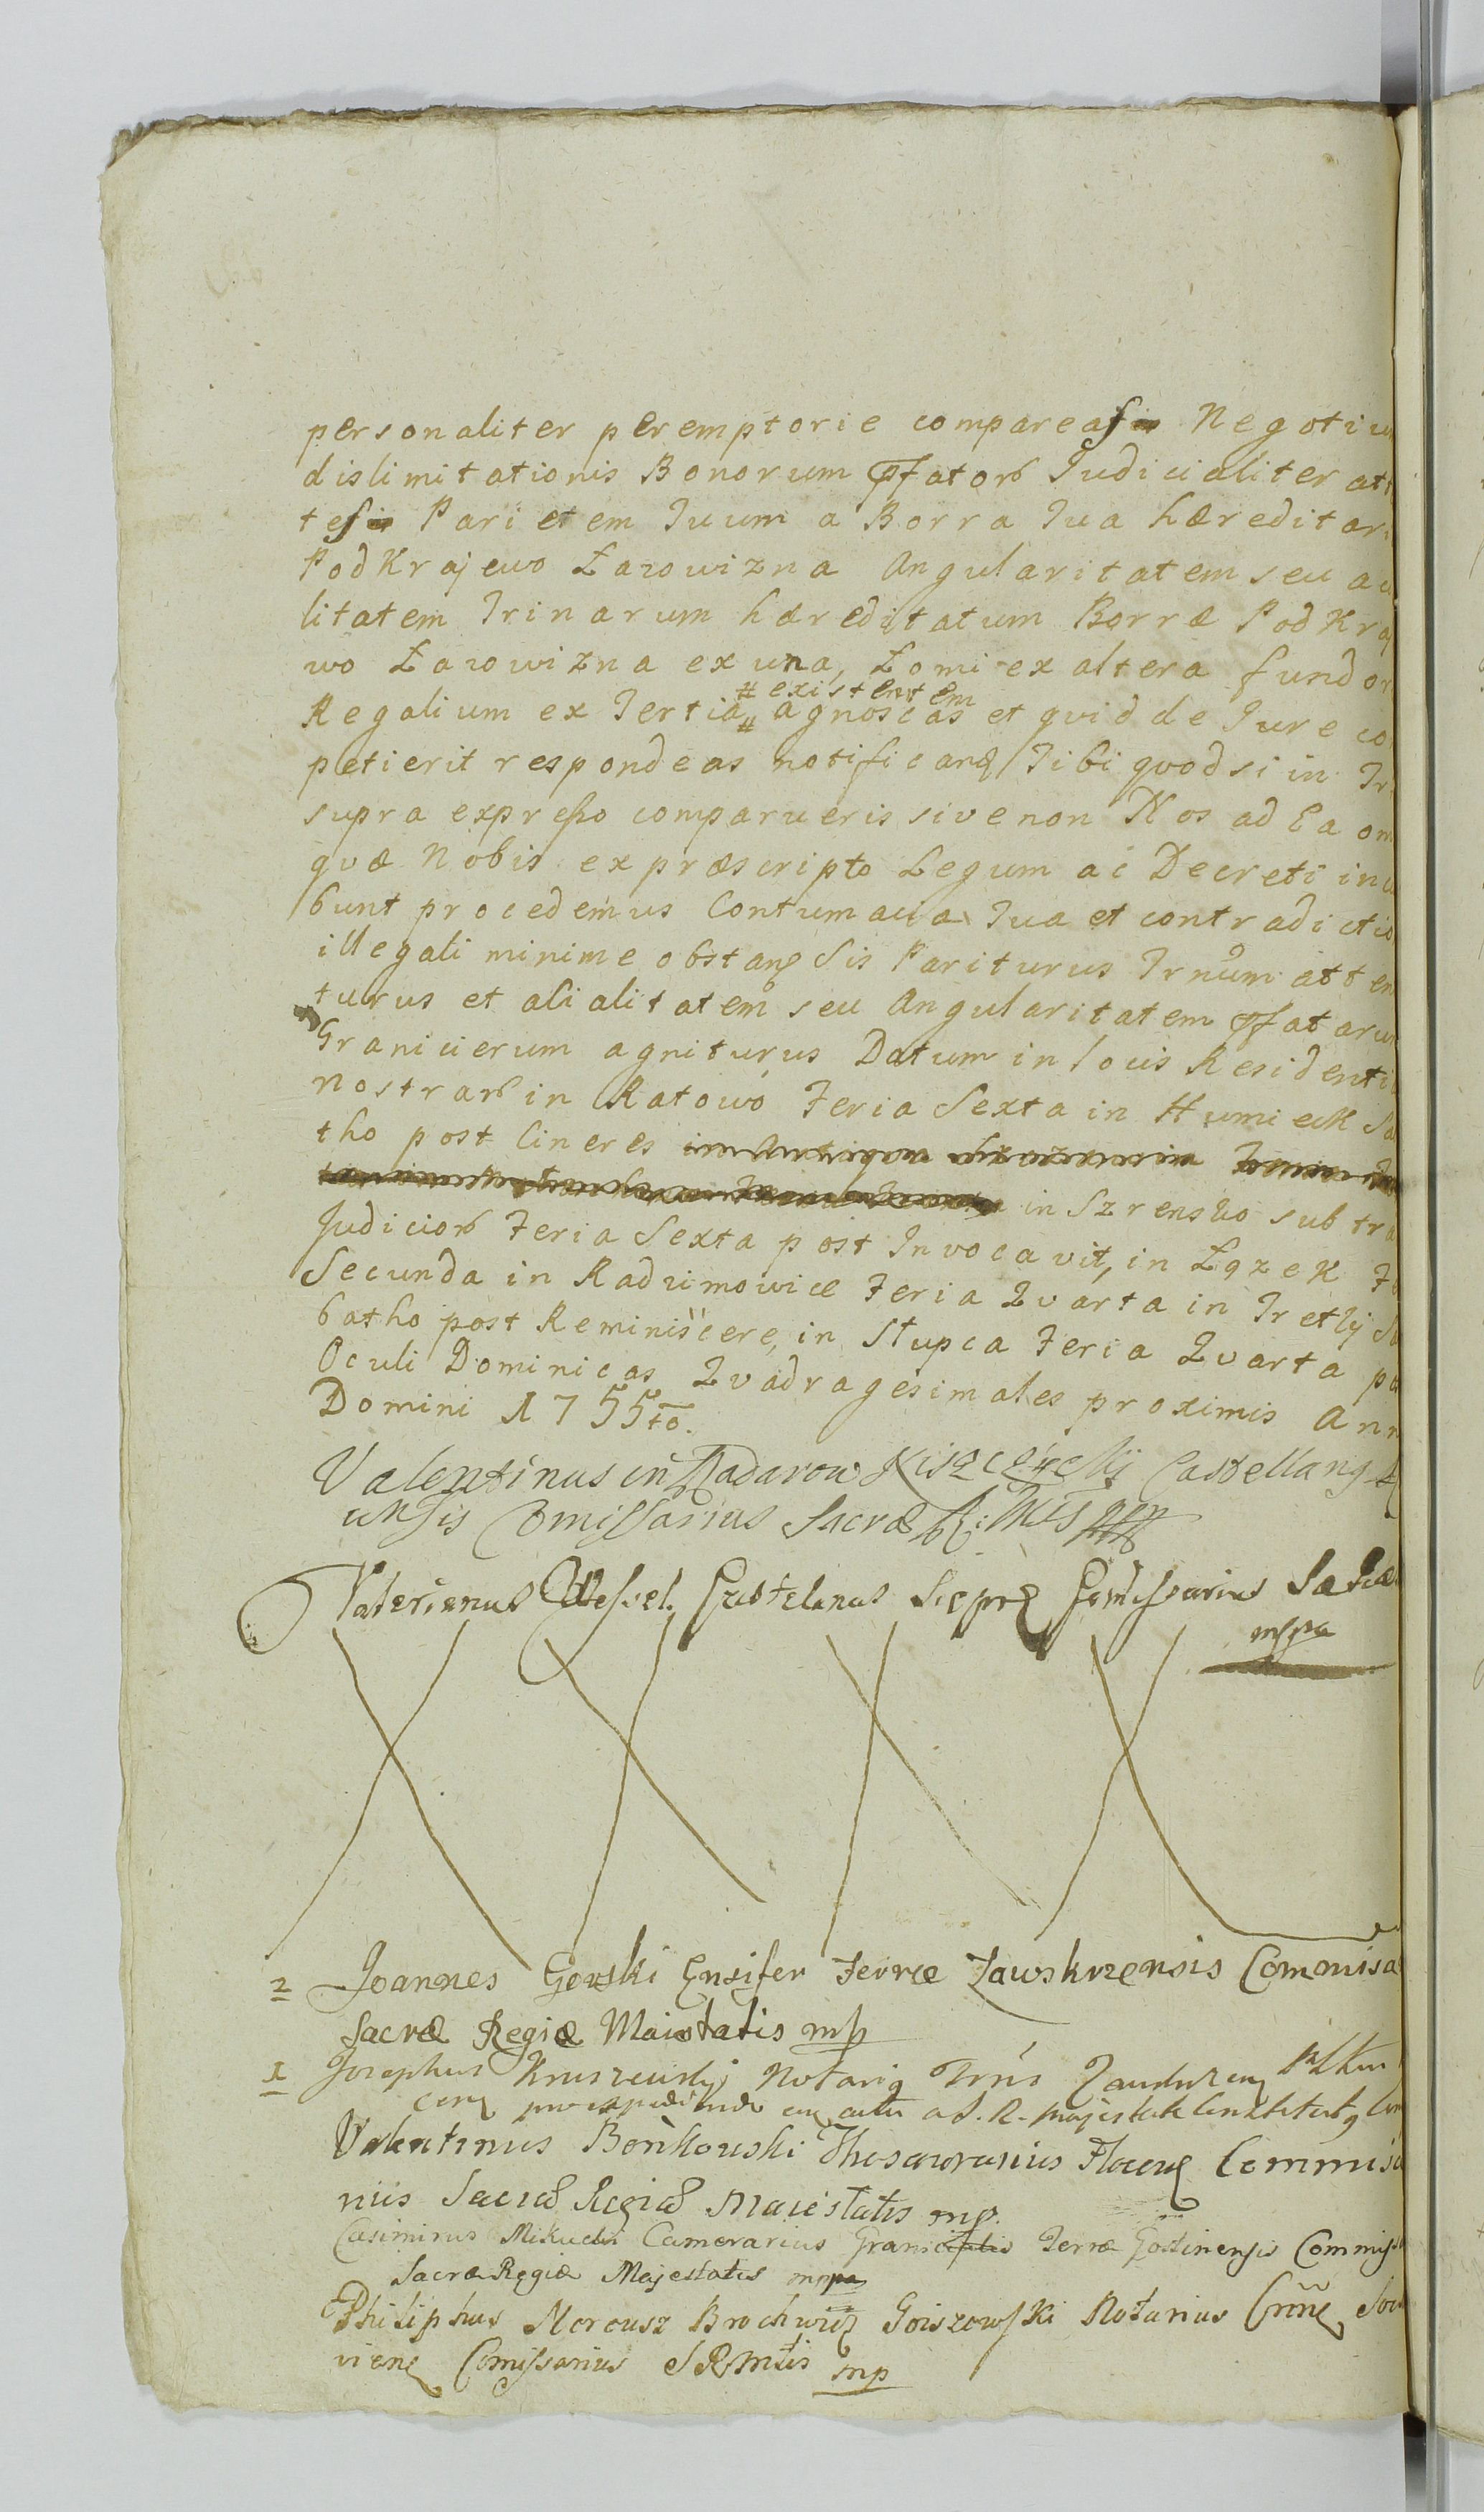 personaliter peremptorie compareas Negotiu
dislimitationis Bonorum pfator Judicialiter att
tes Parietem Tuum a Borra Tua hæreditar
Podkrajewo Łazowizna Angularitatem seu a
litatem Trinarum hæreditatum Borræ Podkraj
wo Łazowizna ex una, Łomi ex altera fundor
# existentem
Regalium ex Tertia # agnoscas et qvid de Jure co
petierit respondeas notificanq Tibi qvod si in Tr
supra expresso comparueris sive non Nos ad Ea om
qvæ Nobis ex præscripto Legum ac Decreti inc
bunt procedemus Contumacia Tua et contradictio
illegali minime obstanq Sis Pariturus Trnum atten
turus et alialitatem seu Angularitatem pfatarum
Granicierum agniturus Datum in locis Residenti
nostrar in Ratowo Feria Sexta in Humieck Sa
tho post Cineres
in Szrensko sub tra
Judicior Feria Sexta post Invocavit, in Łązek F
Secunda in Radzimowice Feria Qvarta in Tretij S
batho post Reminiscere, in Stupca Feria Qvarta po
Oculi Dominicas Qvadragesimales proximis Ann
Domini 1755to.
Valentinus in Radarow Castellanq
ensis Comissarius Sacræ R: Mtis
Valerianus Wessel Castelanus Sieprq Comissarius Sacræ
mppa
2 Joannes Gorski Ensifer Terræ Zawskrzensis Commisa
Sacræ Regiæ Maiestatis mp
1 Josephus Kruszewskij Notariq Trris
a S. R. Majestate
Valentinus Bońkowski Thesaurarius Plocenq Commisa
riis Sacræ Regiæ Maiestatis mp.
Casimirus Mikucki Camerarius Granicialis Terræ Gostinensis Commiss
Sacræ Regiæ Majestatis mppa
Philiphus Brochwicz Goiszowski Notarius
Comissarius SRMtis mp